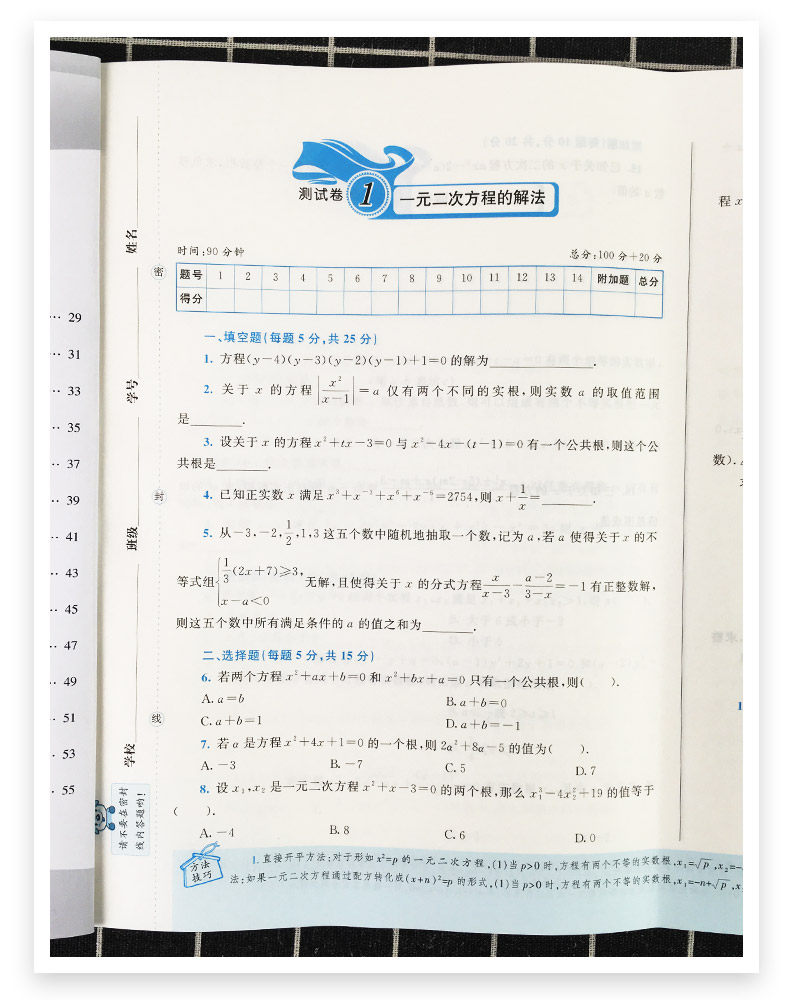 29
31
33
35
37
39
41
43
45
47
49
51
53
55
姓名
学号
班级
学校
密
封
线
请不要在密封
线内答题哟！
测试卷 1 一元二次方程的解法
时间:90 分钟 总分:100 分+20 分
题号 1 2 3 4 5 6 7 8 9 10 11 12 13 14 附加题 总分
得分
一、填空题(每题 5 分,共 25 分)
1. 方程(y-4)(y-3)(y-2)(y-1)+1=0 的解为________.
2. 关于 x 的方程|x²/(x-1)|=a 仅有两个不同的实根,则实数 a 的取值范围
是________.
3. 设关于 x 的方程 x²+tx-3=0 与 x²-4x-(t-1)=0 有一个公共根,则这个公
共根是________.
4. 已知正实数 x 满足 x³+x⁻³+x⁶+x⁻⁶=2754,则 x+1/x=________.
5. 从-3,-2,1/2,1,3 这五个数中随机地抽取一个数,记为 a,若 a 使得关于 x 的不
等式组{1/3(2x+7)≥3, x-a<0 无解,且使得关于 x 的分式方程 x/(x-3)-(a-2)/(3-x)=-1 有正整数解,
则这五个数中所有满足条件的 a 的值之和为________.
二、选择题(每题 5 分,共 15 分)
6. 若两个方程 x²+ax+b=0 和 x²+bx+a=0 只有一个公共根,则( ).
A. a=b B. a+b=0
C. a+b=1 D. a+b=-1
7. 若 α 是方程 x²+4x+1=0 的一个根,则 2α²+8α-5 的值为( ).
A. -3 B. -7 C. 5 D. 7
8. 设 x₁,x₂ 是一元二次方程 x²+x-3=0 的两个根,那么 x₁³-4x₂²+19 的值等于
( ).
A. -4 B. 8 C. 6 D. 0
方法
技巧
1. 直接开平方法:对于形如 x²=p 的一元二次方程,(1)当 p>0 时,方程有两个不等的实数根,x₁=√p,x₂=-
法:如果一元二次方程通过配方转化成(x+n)²=p 的形式,(1)当 p>0 时,方程有两个不等的实数根,x₁=-n+√p,x
程 x
数).